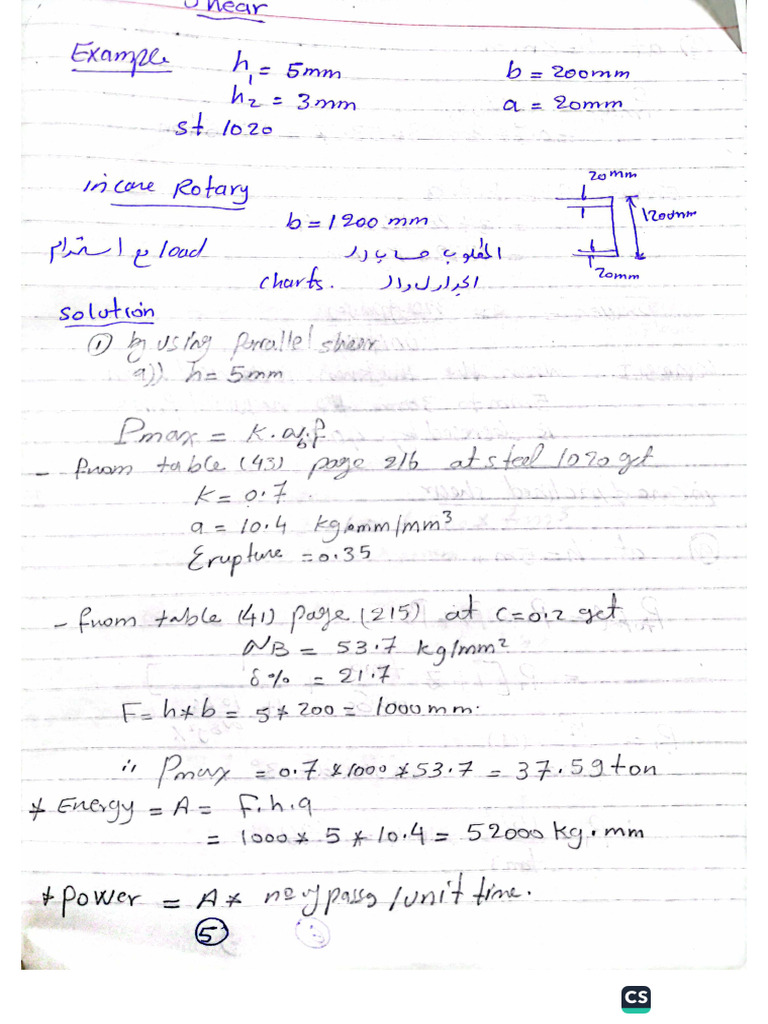 Shear
Example h₁ = 5mm b = 200mm
h₂ = 3mm a = 20mm
st 1020
in case Rotary
20 mm
b = 1200 mm
1200mm
المطلوب حساب load مع استخدام
charts.
20mm
Solution
① by using parallel shear
a)) h = 5mm
Pmax = K.σb.f
- from table (43) page 216 at steel 1020 get
K = 0.7
a = 10.4 kg.mm/mm³
Erupture = 0.35
- from table (41) page (215) at C=0.2 get
σB = 53.7 kg/mm²
δ% = 21.7
F = h*b = 5*200 = 1000mm.
∴ Pmax = 0.7*1000*53.7 = 37.59 ton
* Energy = A = F.h.q
= 1000*5*10.4 = 52000 kg.mm
* power = A* no of pass/unit time.
5
CS